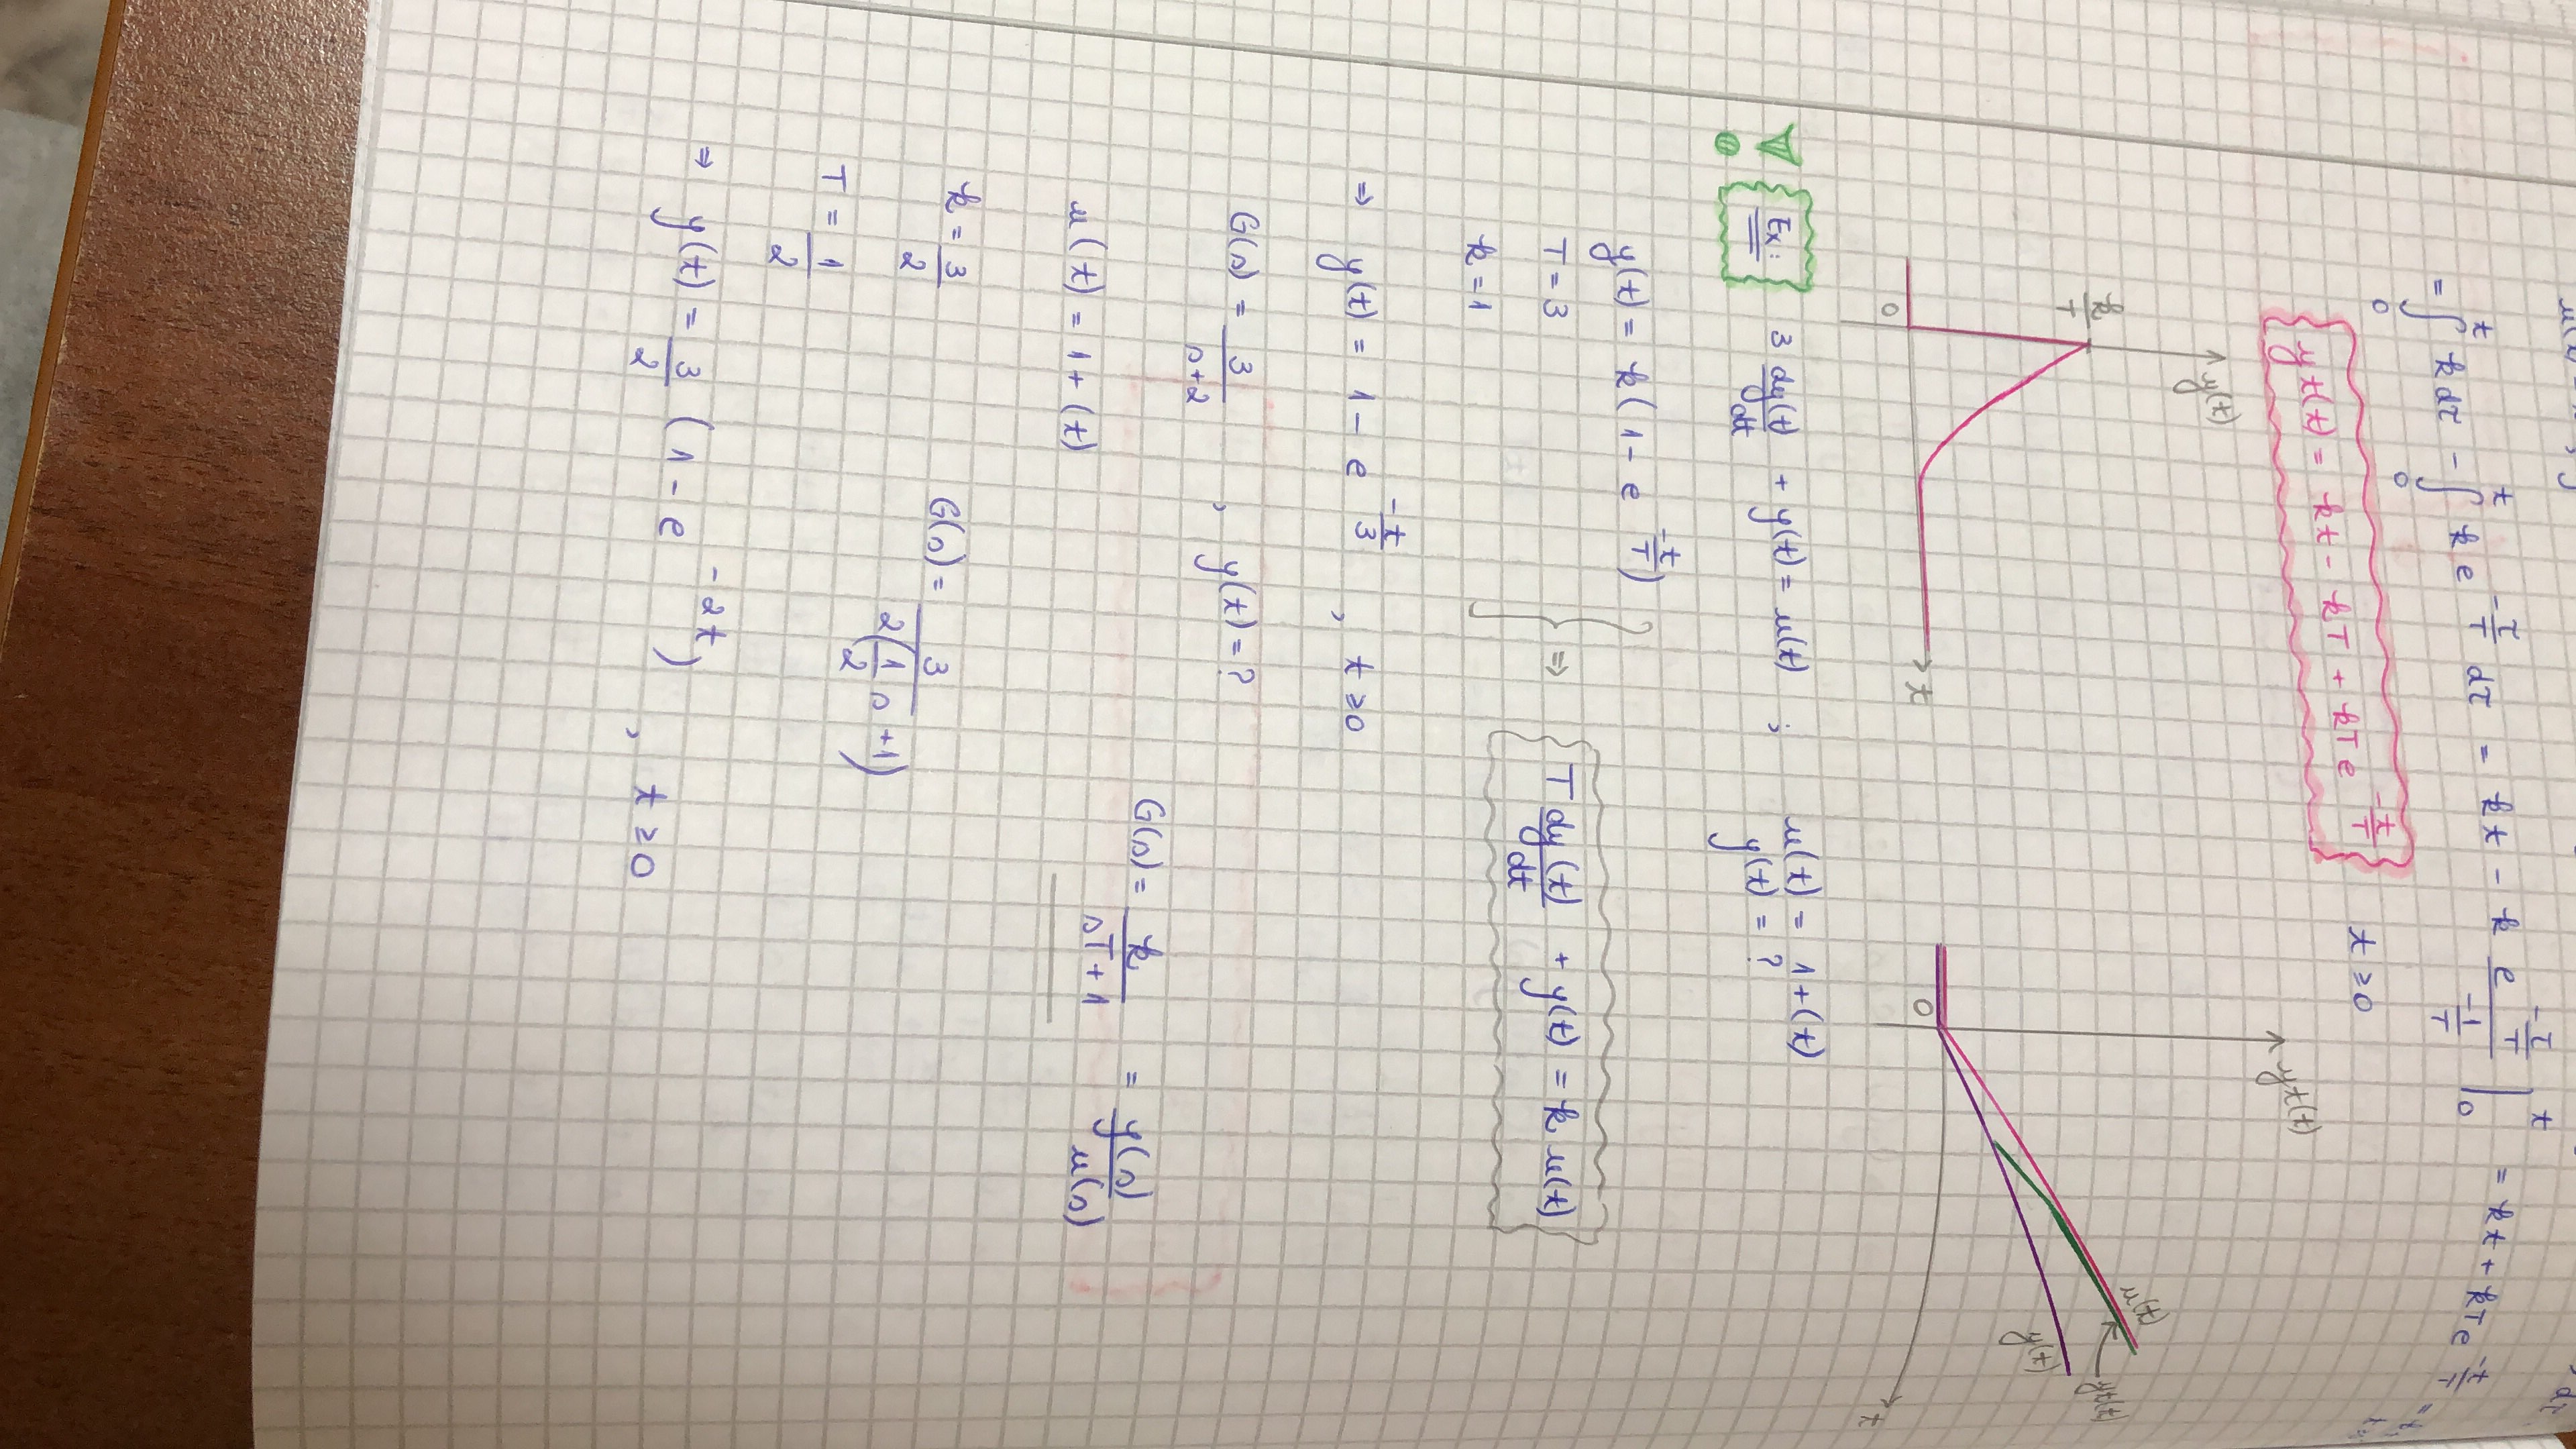 = ∫₀ᵗ k dτ - ∫₀ᵗ k e^(-τ/T) dτ = kt - k e^(-τ/T) / (-1/T) |₀ᵗ = kt + kT e^(-t/T) =
yt(t) = kt - kT + kT e^(-t/T)   t ≥ 0
y(t)
k/T
0
t
yt(t)
u(t)
yt(t)
y(t)
0
t
Ex: 3 dy(t)/dt + y(t) = u(t) ; u(t) = 1+(t)
y(t) = ?
y(t) = k(1 - e^(-t/T))
T = 3
k = 1
⇒ T dy(t)/dt + y(t) = k u(t)
⇒ y(t) = 1 - e^(-t/3) , t ≥ 0
G(s) = 3/(s+2) , y(t) = ?
G(s) = k/(sT+1) = y(s)/u(s)
u(t) = 1+(t)
k = 3/2   G(s) = 3/(2(1/2 s + 1))
T = 1/2
⇒ y(t) = 3/2 (1 - e^(-2t)) , t ≥ 0